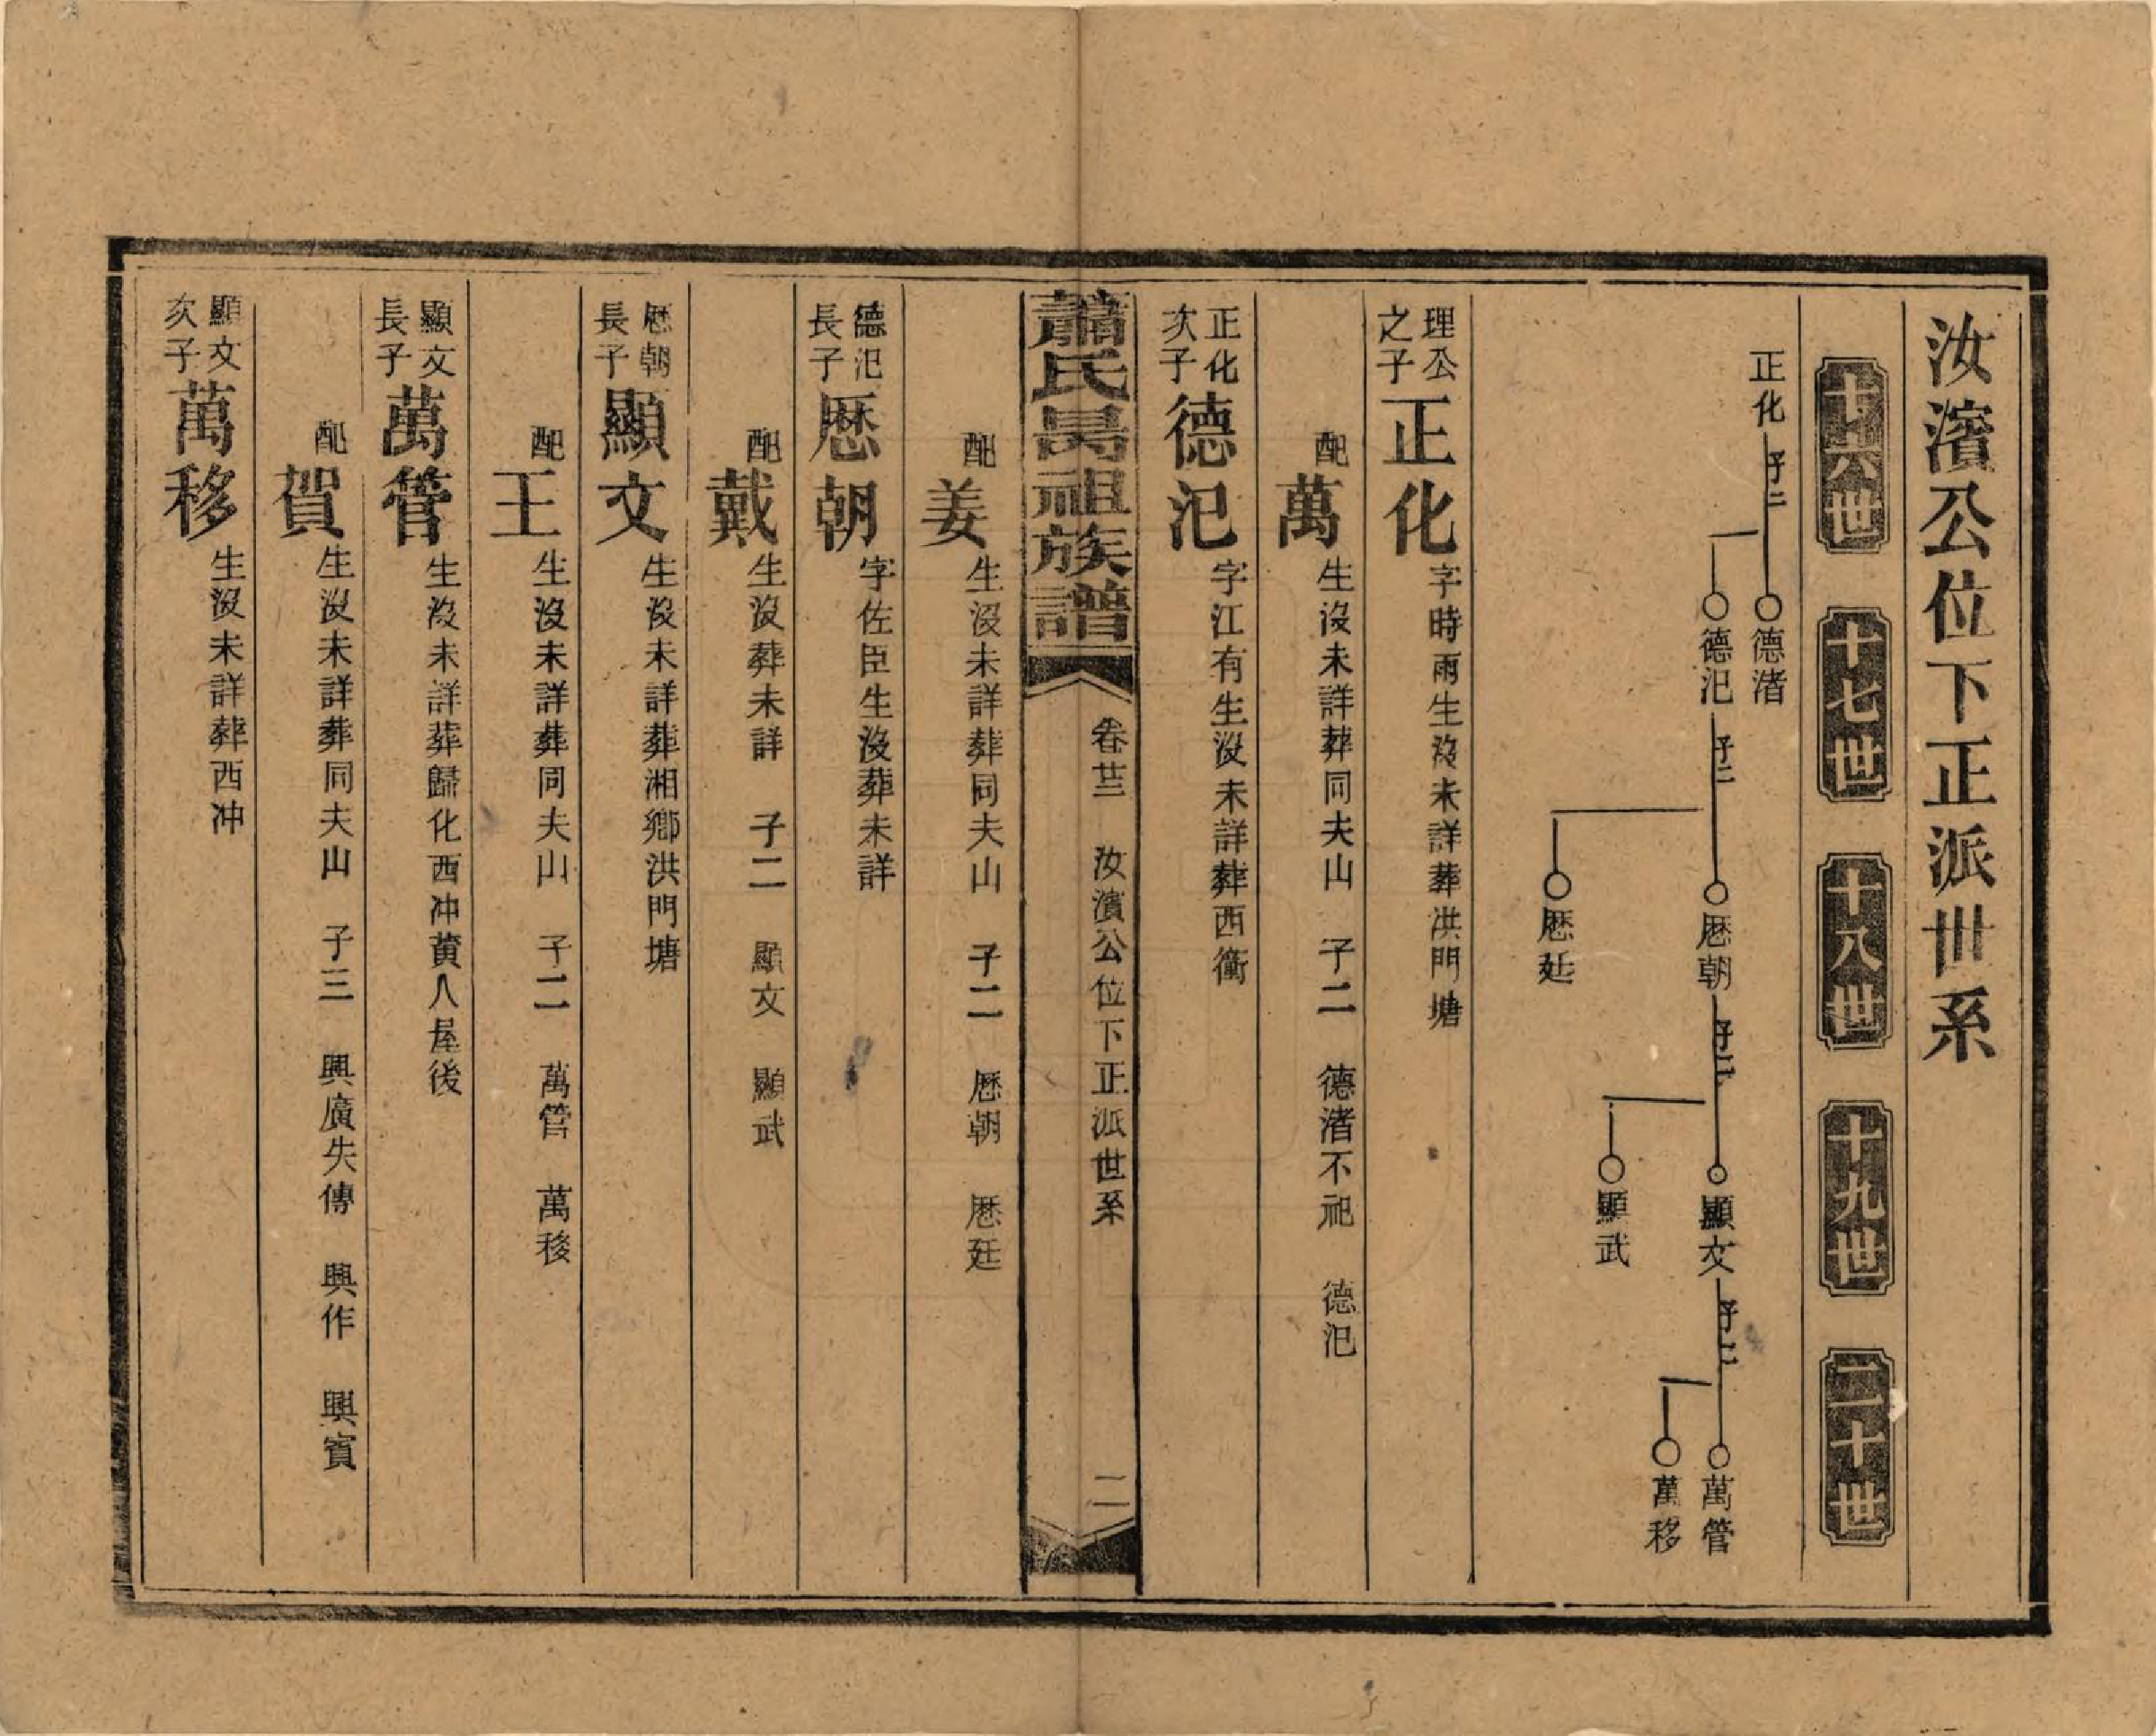 汝濱公位下正派世系
十六世
十七世
十八世
十九世
二十世
正化 子二
德渚
德汜 子二
厯朝 子二
厯廷
顯文 子二
顯武
萬管
萬移
理公之子 正化 字時雨生沒未詳葬洪門塘
配 萬 生沒未詳葬同夫山 子二 德渚不祀 德汜
正化次子 德汜 字江有生沒未詳葬西衝
蕭氏昺祖族譜 卷廿三 汝濱公位下正派世系 二
配 姜 生沒未詳葬同夫山 子二 厯朝 厯廷
德汜長子 厯朝 字佐臣生沒葬未詳
配 戴 生沒葬未詳 子二 顯文 顯武
厯朝長子 顯文 生沒未詳葬湘鄉洪門塘
配 王 生沒未詳葬同夫山 子二 萬管 萬移
顯文長子 萬管 生沒未詳葬歸化西冲黄八屋後
配 賀 生沒未詳葬同夫山 子三 興廣失傳 興作 興賓
顯文次子 萬移 生沒未詳葬西冲